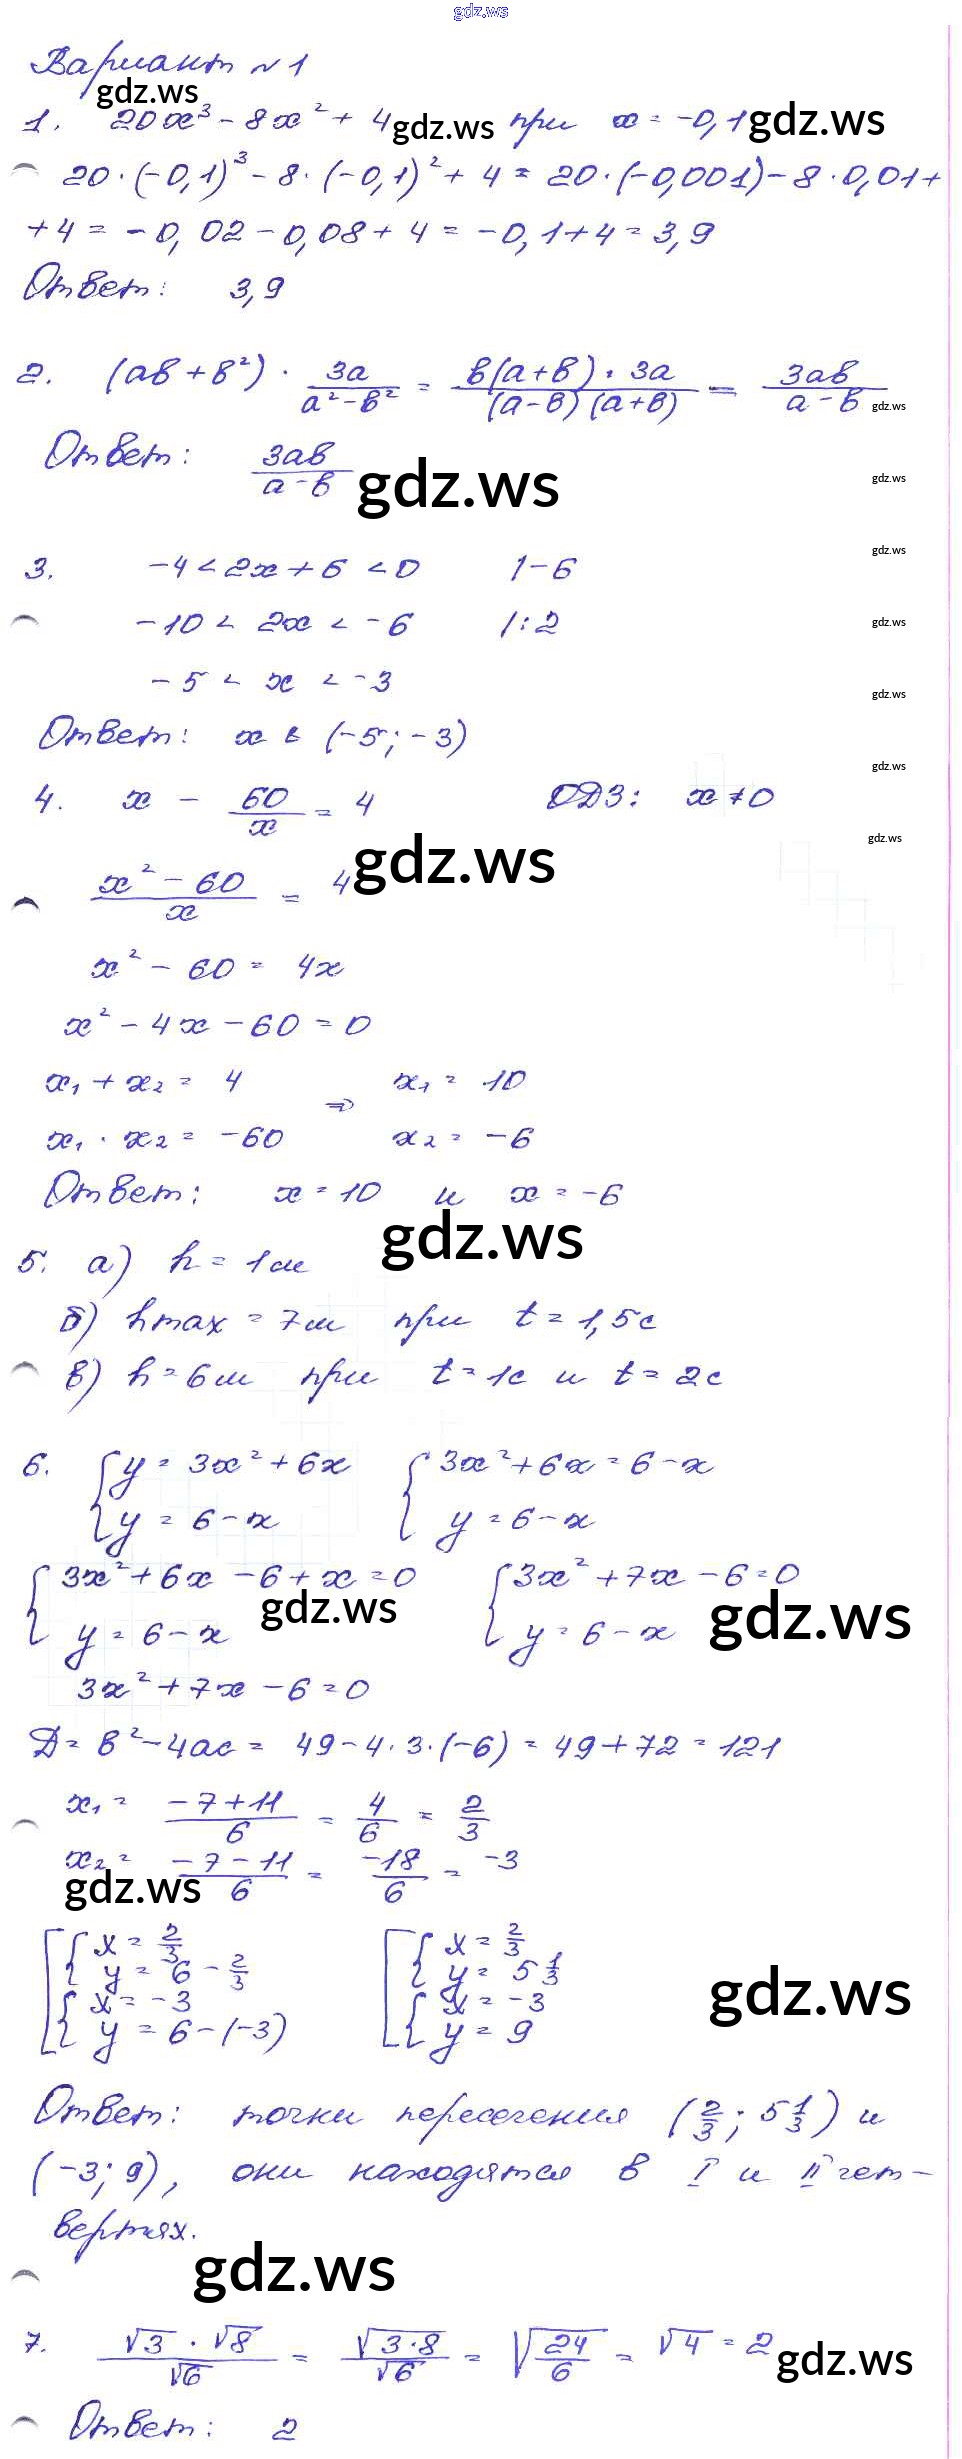 gdz.ws
Вариант №1
gdz.ws
1. 20x³ - 8x² + 4 gdz.ws при x = -0,1 gdz.ws
20·(-0,1)³ - 8·(-0,1)² + 4 = 20·(-0,001) - 8·0,01 +
+ 4 = -0,02 - 0,08 + 4 = -0,1 + 4 = 3,9
Ответ: 3,9
2. (ab + b²) · 3a/(a² - b²) = b(a+b)·3a/((a-b)(a+b)) = 3ab/(a-b)
gdz.ws
Ответ: 3ab/(a-b) gdz.ws
gdz.ws
3. -4 < 2x + 6 < 0 |-6
gdz.ws
-10 < 2x < -6 |:2
gdz.ws
-5 < x < -3
gdz.ws
Ответ: x ∈ (-5; -3)
gdz.ws
4. x - 60/x = 4 ОДЗ: x ≠ 0
gdz.ws
(x² - 60)/x = 4 gdz.ws
x² - 60 = 4x
x² - 4x - 60 = 0
x₁ + x₂ = 4 ⇒ x₁ = 10
x₁ · x₂ = -60 x₂ = -6
Ответ: x = 10 и x = -6
gdz.ws
5. а) h = 1м
б) hmax = 7м при t = 1,5с
в) h = 6м при t = 1с и t = 2с
6. { y = 3x² + 6x { 3x² + 6x = 6 - x
y = 6 - x y = 6 - x
{ 3x² + 6x - 6 + x = 0 { 3x² + 7x - 6 = 0
gdz.ws gdz.ws
y = 6 - x y = 6 - x
3x² + 7x - 6 = 0
Д = b² - 4ac = 49 - 4·3·(-6) = 49 + 72 = 121
x₁ = (-7+11)/6 = 4/6 = 2/3
x₂ = (-7-11)/6 = -18/6 = -3
gdz.ws
[ { x = 2/3 [ { x = 2/3
y = 6 - 2/3 y = 5 1/3
{ x = -3 { x = -3
y = 6 - (-3) y = 9
gdz.ws
Ответ: точки пересечения (2/3; 5 1/3) и
(-3; 9), они находятся в I и II чет-
вертях.
gdz.ws
7. √3 · √8/√6 = √(3·8)/√6 = √(24/6) = √4 = 2
gdz.ws
Ответ: 2